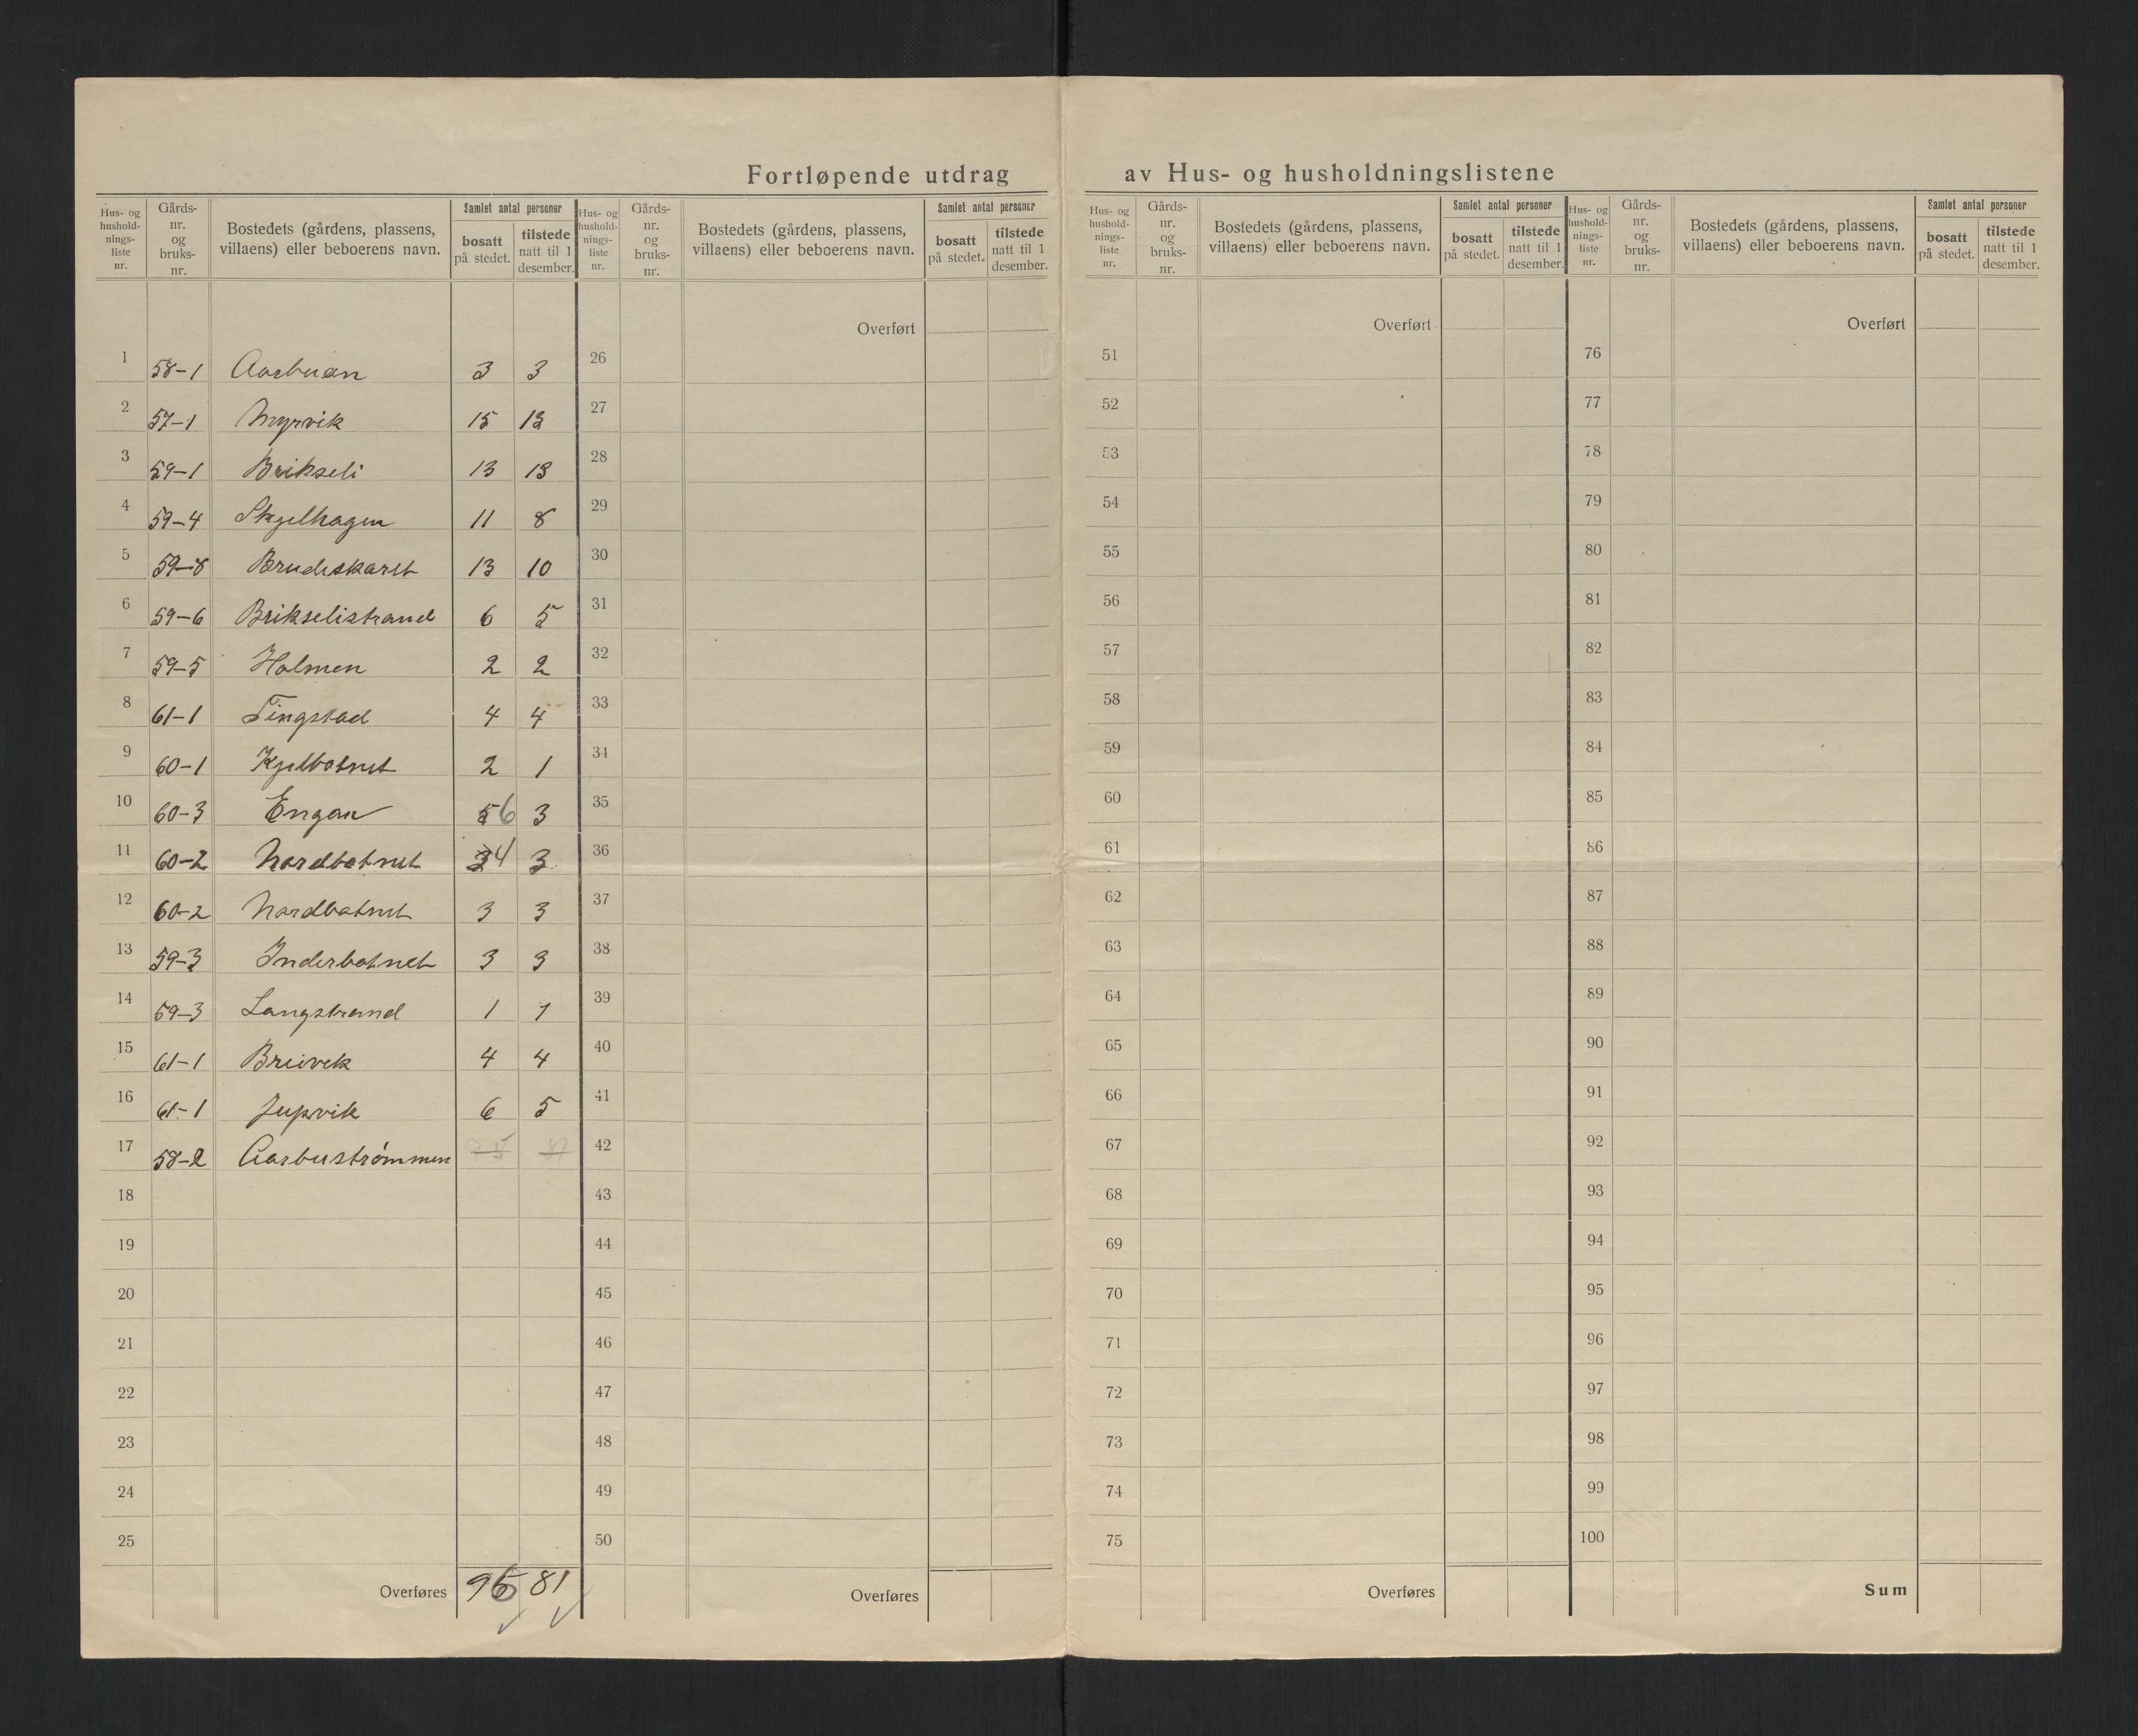 Fortløpende utdrag av Hus- og husholdningslistene
Hus- og hushold-nings-liste nr. Gårds-nr. og bruks-nr. Bostedets (gårdens, plassens, villaens) eller beboerens navn. Samlet antal personer bosatt på stedet. tilstede natt til 1 desember.
1 58-1 Aarbuan 3 3
2 57-1 Myrvik 15 13
3 59-1 Brikseli 13 13
4 59-4 Skjelhagen 11 8
5 59-8 Brudeskaret 13 10
6 59-6 Brikselistrand 6 5
7 59-5 Holmen 2 2
8 61-1 Tingstad 4 4
9 60-1 Kjelbotnet 2 1
10 60-3 Engan 5 6 3
11 60-2 Nordbotnet 3 4 3
12 60-2 Nordbotnet 3 3
13 59-3 Inderbotnet 3 3
14 59-3 Langstrand 1 1
15 61-1 Breivik 4 4
16 61-1 Jupvik 6 5
17 58-2 Aarbustrømmen
18
19
20
21
22
23
24
25
Overføres 96 81
Hus- og hushold-nings-liste nr. Gårds-nr. og bruks-nr. Bostedets (gårdens, plassens, villaens) eller beboerens navn. Samlet antal personer bosatt på stedet. tilstede natt til 1 desember.
Overført
26
27
28
29
30
31
32
33
34
35
36
37
38
39
40
41
42
43
44
45
46
47
48
49
50
Overføres
Hus- og hushold-nings-liste nr. Gårds-nr. og bruks-nr. Bostedets (gårdens, plassens, villaens) eller beboerens navn. Samlet antal personer bosatt på stedet. tilstede natt til 1 desember.
Overført
51
52
53
54
55
56
57
58
59
60
61
62
63
64
65
66
67
68
69
70
71
72
73
74
75
Overføres
Hus- og hushold-nings-liste nr. Gårds-nr. og bruks-nr. Bostedets (gårdens, plassens, villaens) eller beboerens navn. Samlet antal personer bosatt på stedet. tilstede natt til 1 desember.
Overført
76
77
78
79
80
81
82
83
84
85
86
87
88
89
90
91
92
93
94
95
96
97
98
99
100
Sum